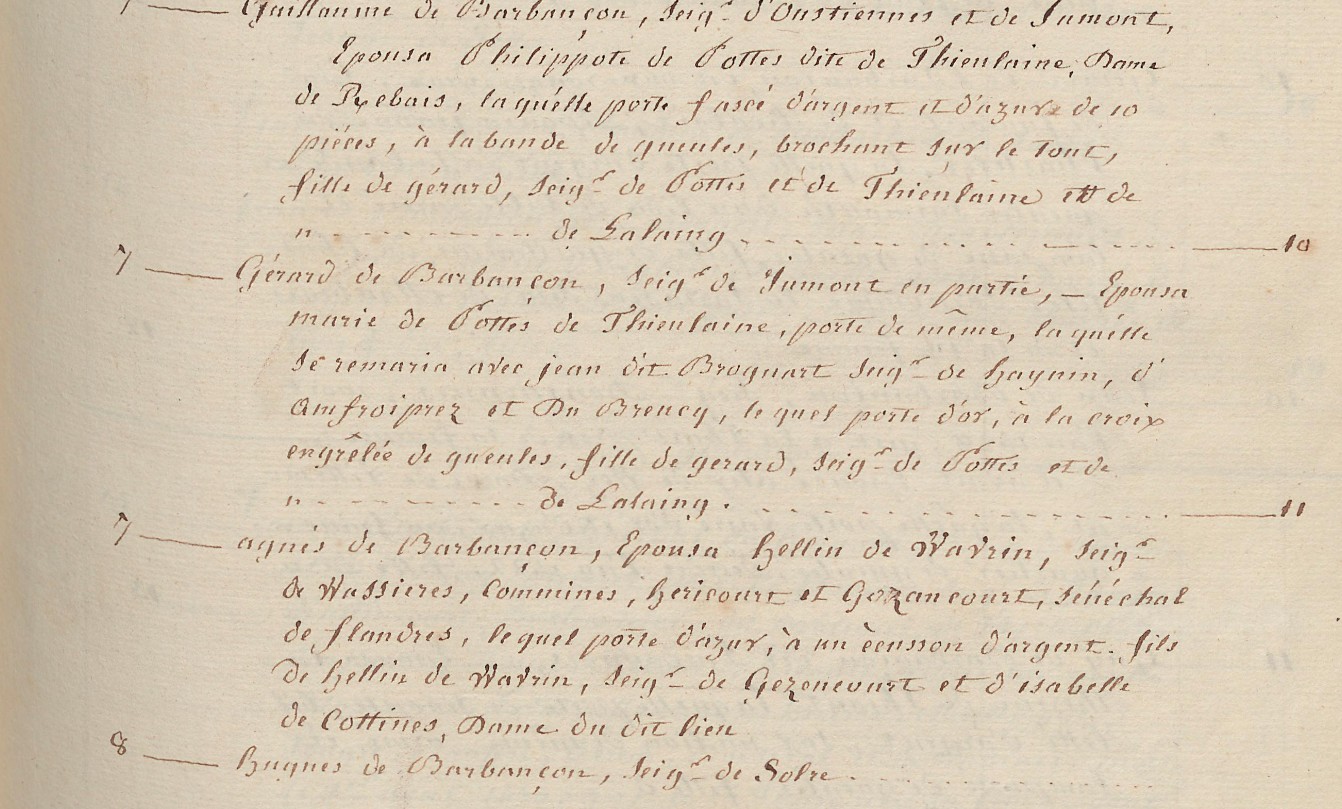 7 — Guillaume de Barbançon, Seigr d'Oustiennes et de Jumont,
Epousa Philippote de Pottes dite de Thieulaine, Dame
de Rebais, laquélle porte fascé d'argent et d'azur de 10
piéces, à la bande de gueules, brochant sur le tout,
fille de gérard, Seigr de Pottes et de Thieulaine et de
n - - - - - - - - - - de Lalaing . . . . . . . . . . — 10
7 — Gérard de Barbançon, Seigr de Jumont en partie, — Epousa
marie de Pottes de Thieulaine, porte de même, laquélle
se remaria avec jean dit Broquart Seigr de haynin, d'
amfroiprez et Du Breucq, lequel porte d'or, à la croix
engrêlée de gueules, fille de gerard, Seigr de Pottes et de
n - - - - - - - - - - de Lalaing . . . . . . . . . . — 11
7 — agnés de Barbançon, Epousa hellin de Wavrin, Seigr
de Wassieres, Commines, hericourt et Gozancourt, Sénéchal
de flandres, lequel porte d'azur, à un écusson d'argent. fils
De hellin de Wavrin, Seigr de Gezencourt et d'isabelle
de Cottines, Dame du dit lieu
8 — hugues de Barbançon, Seigr de Solre . . . . . . . . . .